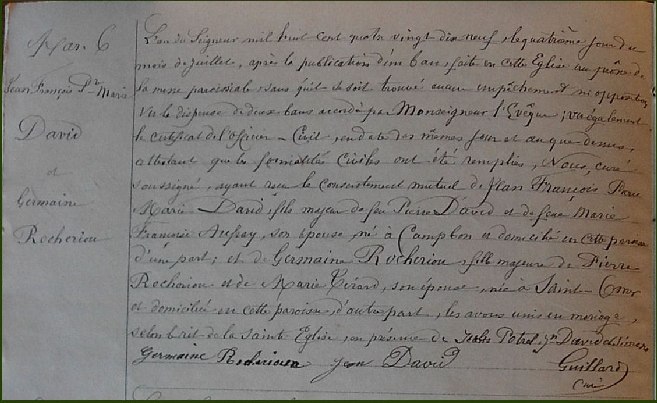 Mar. 6
Jean François Pre Marie
David
et
Germaine
Rocheriou
L'an du Seigneur mil huit cent quatre vingt dix neuf, le quatrième jour du
mois de juillet, après la publication d'un ban, faite en cette Eglise au prône de
la messe paroissiale sans qu'il se soit trouvé aucun empêchement ni opposition
Vu la dispense de deux bans accordé par Monseigneur l'Evêque; vu également
le certificat de l'officier Civil, en date des mêmes jour et an que dessus,
attestant que les formalités civiles ont été remplies, Nous, curé
soussigné, ayant reçu le consentement mutuel de Jean François Pierre
Marie David, fils majeur de feu Pierre David et de feue Marie
Françoise son épouse, né à Campbon et domicilié en cette paroisse
d'une part; et de Germaine Rocheriou, fille majeure de Pierre
Rocheriou et de Marie Girard, son épouse, née à Saint
et domiciliée en cette paroisse, d'autre part, les avons unis en mariage,
selon le rit de la Sainte Eglise, en présence de David
Germaine Rocheriou Jean David Guillard
Curé